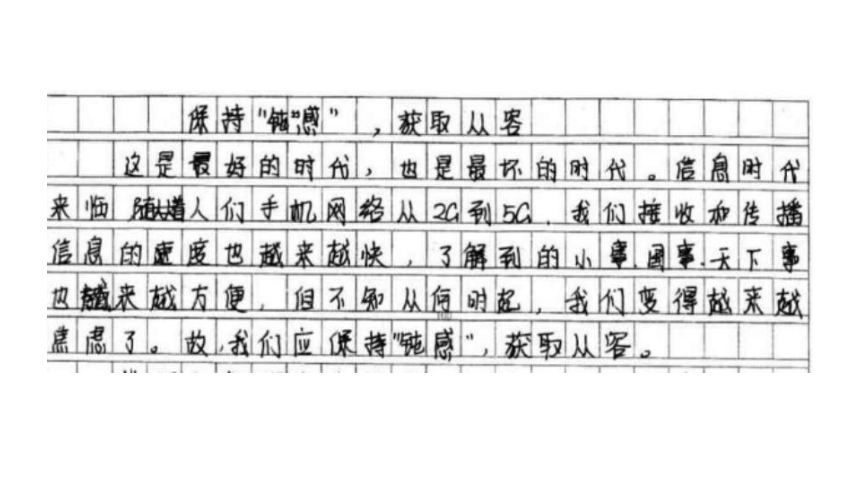 保持“钝感”，获取从容
这是最好的时代，也是最坏的时代。信息时代
来临，随着人们手机网络从2G到5G，我们接收和传播
信息的速度也越来越快，了解到的小事、国事、天下事
也越来越方便，但不知从何时起，我们变得越来越
焦虑了。故，我们应保持“钝感”，获取从容。